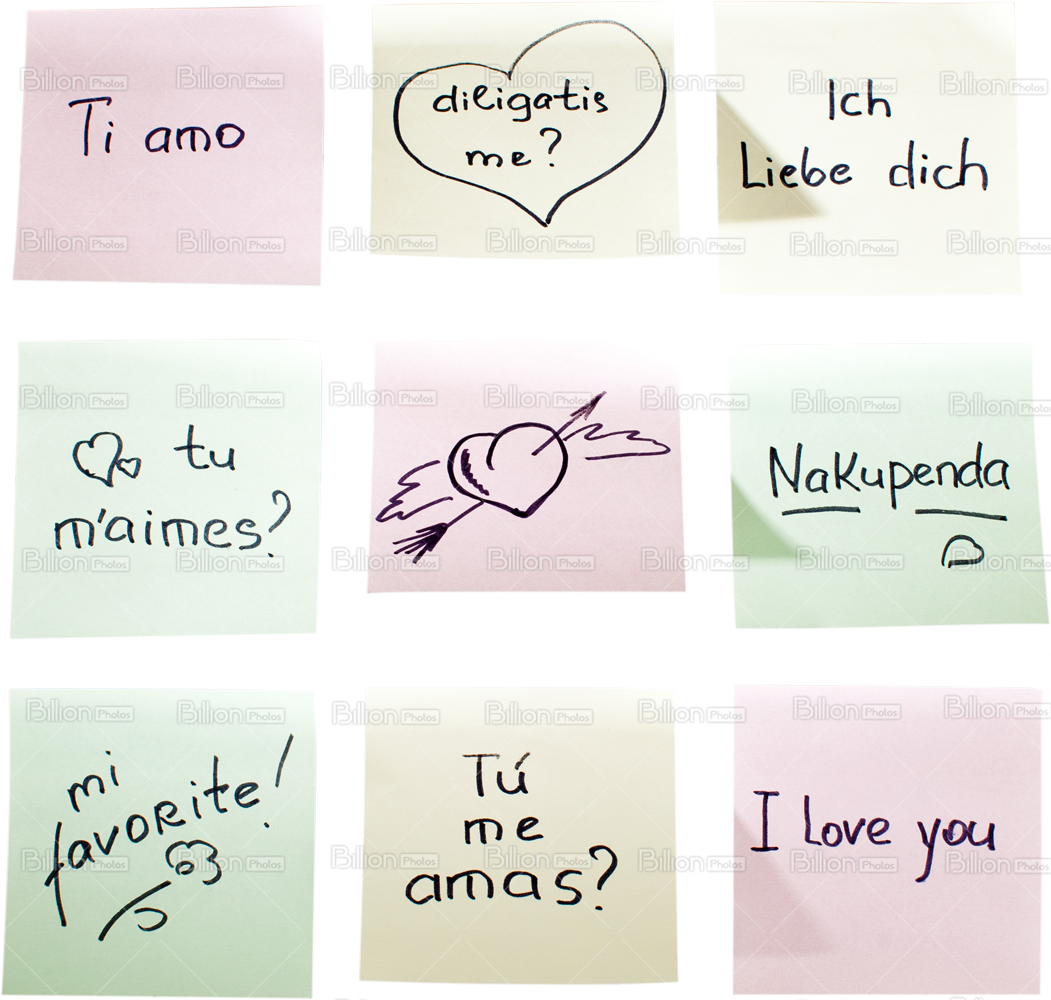 Ti amo
diligatis
me?
Ich
Liebe dich
tu
m'aimes?
Nakupenda
mi
favorite!
Tú
me
amas?
I love you
Billion Photos